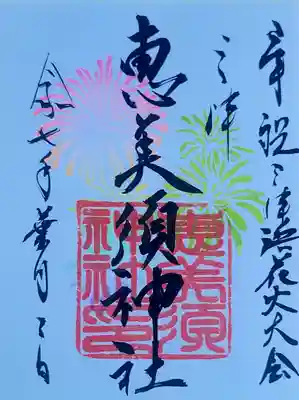 奉祝三津浜花火大会
三津
恵美須神社
令和七年葉月三日
恵美須
神社印